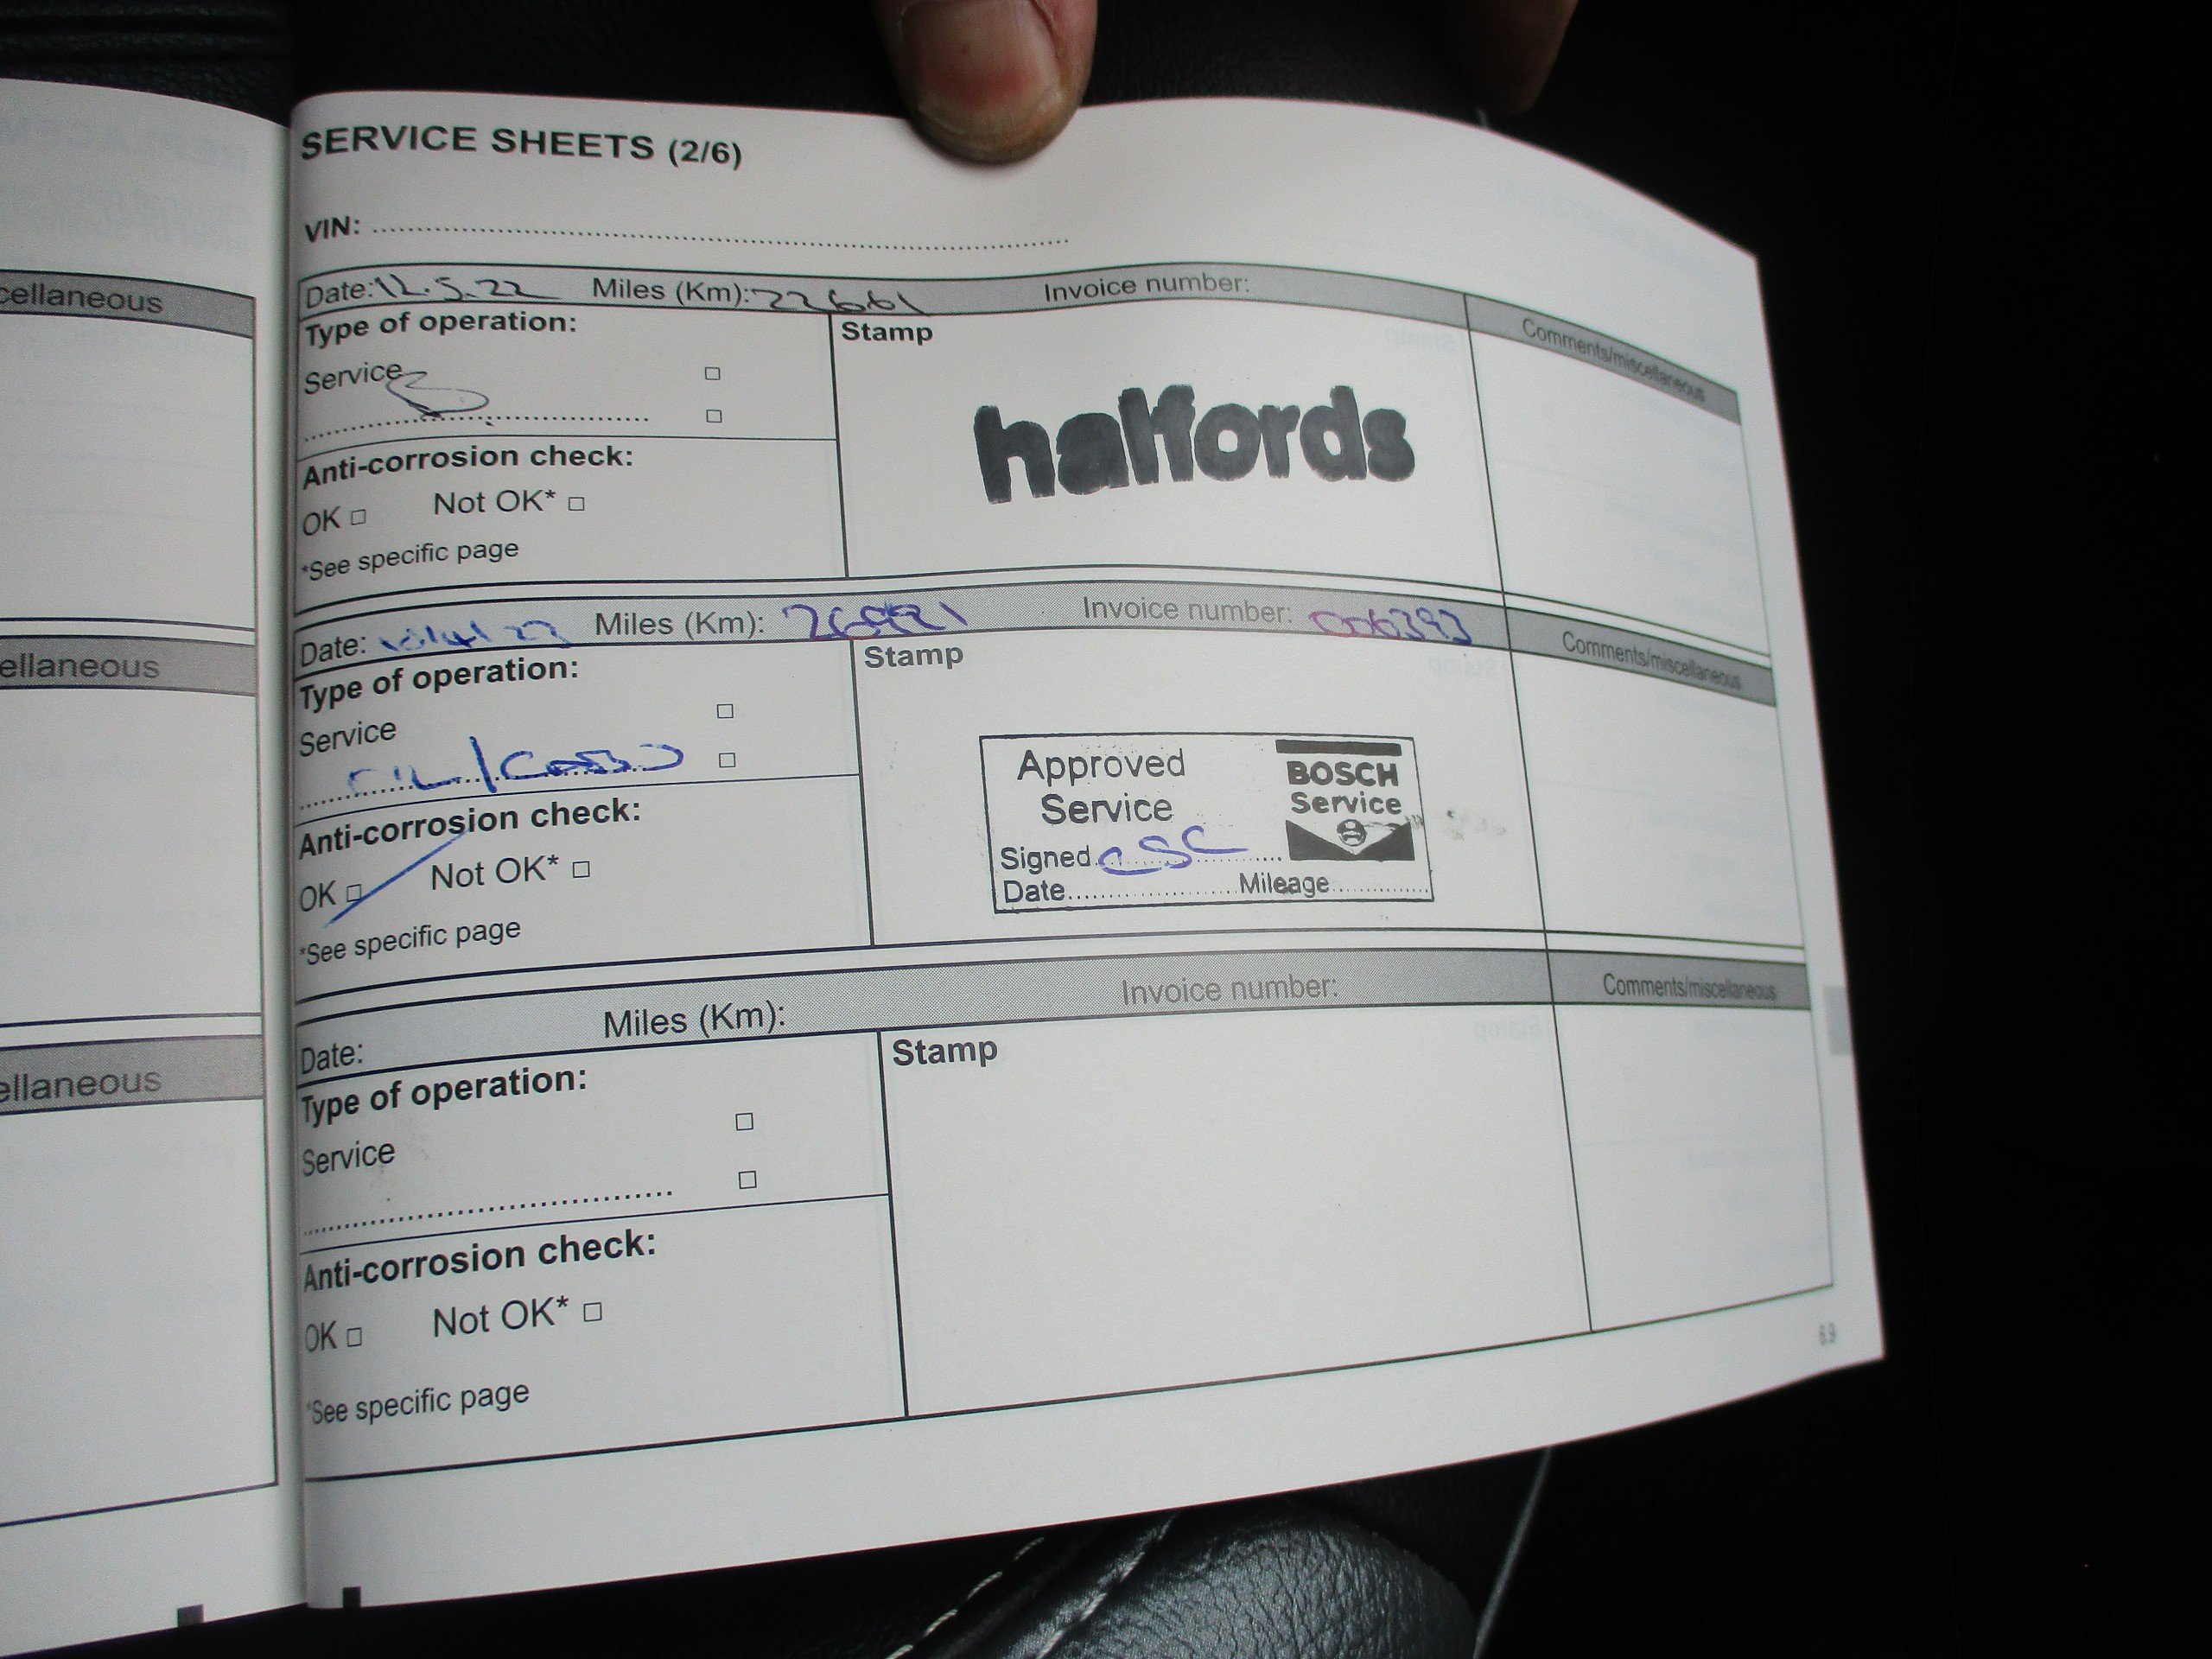 SERVICE SHEETS (2/6)
VIN:
Date: 12.5.22 Miles (Km): 22661 Invoice number:
Comments/miscellaneous
Type of operation:
Stamp
Service
halfords
Anti-corrosion check:
OK Not OK*
*See specific page
Date: Miles (Km): Invoice number: 006393
Comments/miscellaneous
Type of operation:
Stamp
Service
Approved
Service
BOSCH
Service
Signed
Date Mileage
Anti-corrosion check:
OK Not OK*
*See specific page
Date: Miles (Km): Invoice number:
Comments/miscellaneous
Type of operation:
Stamp
Service
Anti-corrosion check:
OK Not OK*
*See specific page
cellaneous
ellaneous
ellaneous